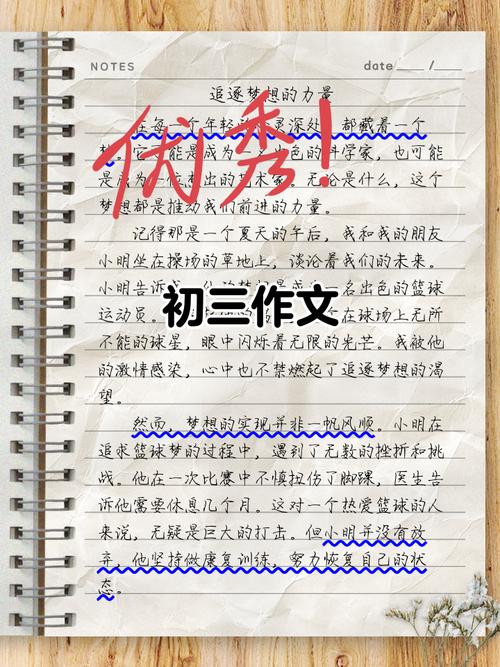 NOTES
date ___ / ___
追逐梦想的力量
在每一个年轻的心灵深处，都藏着一个
梦。它可能是成为一名出色的科学家，也可能
是成为一位杰出的艺术家。无论是什么，这个
梦想都是推动我们前进的力量。
优秀！
记得那是一个夏天的午后，我和我的朋友
小明坐在操场的草地上，谈论着我们的未来。
小明告诉我，他的梦想是成为一名出色的篮球
运动员。
初三作文
个在球场上无所
不能的球星，眼中闪烁着无限的光芒。我被他
的激情感染，心中也不禁燃起了追逐梦想的渴
望。
然而，梦想的实现并非一帆风顺。小明在
追求篮球梦的过程中，遇到了无数的挫折和挑
战。他在一次比赛中不慎扭伤了脚踝，医生告
诉他需要休息几个月。这对一个热爱篮球的人
来说，无疑是巨大的打击。但小明并没有放
弃，他坚持做康复训练，努力恢复自己的状
态。